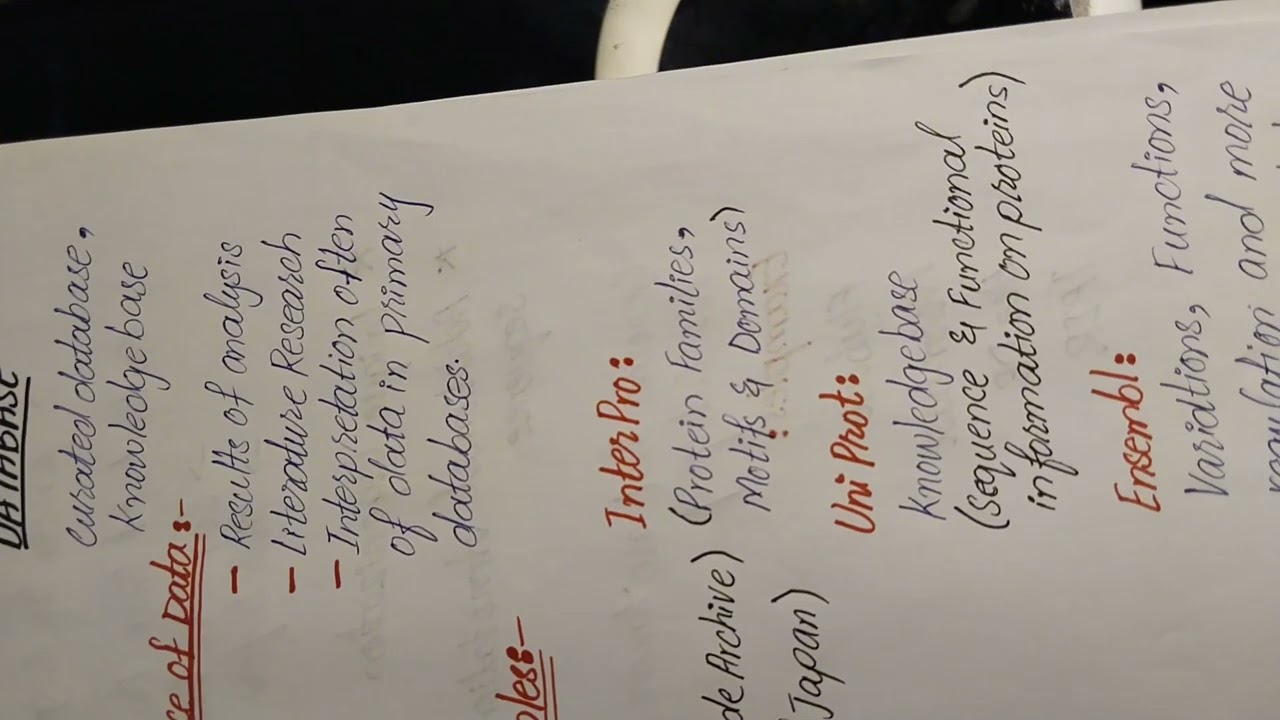 DATABASE
curated database,
knowledgebase
ce of Data:-
- Results of analysis
- Literature Research
- Interpretation often
of data in primary
databases.
ples:-
InterPro:
(Protein Families,
Motifs & Domains)
de Archive)
Japan)
UniProt:
knowledgebase
(sequence & Functional
information on proteins)
Ensembl:
Variations, Functions,
and more